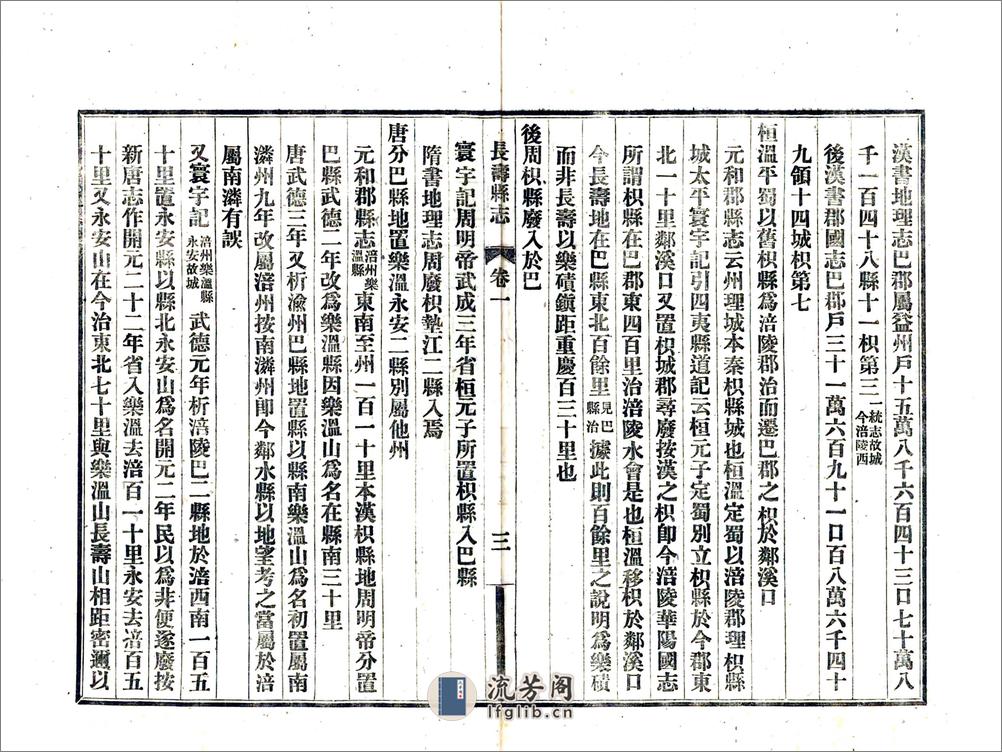 漢書地理志巴郡屬益州戶十五萬八千六百四十三口七十萬八
千一百四十八縣十一枳第三一統志故城今涪陵西
後漢書郡國志巴郡戶三十一萬六百九十一口百八萬六千四十
九領十四城枳第七
桓溫平蜀以舊枳縣爲涪陵郡治而遷巴郡之枳於鄰溪口
元和郡縣志云州理城本秦枳縣城也桓溫定蜀以涪陵郡理枳縣
城太平寰宇記引四夷縣道記云桓元子定蜀別立枳縣於今郡東
北一十里鄰溪口又置枳城郡尋廢按漢之枳卽今涪陵華陽國志
所謂枳縣在巴郡東四百里治涪陵水會是也桓溫移枳於鄰溪口
今長壽地在巴縣東北百餘里見巴縣治據此則百餘里之說明爲樂磧
而非長壽以樂磧鎭距重慶百三十里也
後周枳縣廢入於巴
長壽縣志 卷一 三
寰宇記周明帝武成三年省桓元子所置枳縣入巴縣
隋書地理志周廢枳墊江二縣入焉
唐分巴縣地置樂溫永安二縣別屬他州
元和郡縣志涪州樂溫縣東南至州一百一十里本漢枳縣地周明帝分置
巴縣武德二年改爲樂溫縣因樂溫山爲名在縣南三十里
唐武德三年又析渝州巴縣地置縣以縣南樂溫山爲名初置屬南
潾州九年改屬涪州按南潾州卽今鄰水縣以地望考之當屬於涪
屬南潾有誤
又寰宇記涪州樂溫縣永安故城武德元年析涪陵巴二縣地於涪西南一百五
十里置永安縣以縣北永安山爲名開元二年民以爲非便遂廢按
新唐志作開元二十二年省入樂溫去涪百一十里永安去涪百五
十里又永安山在今治東北七十里與樂溫山長壽山相距密邇以
流芳阁
lfglib.cn